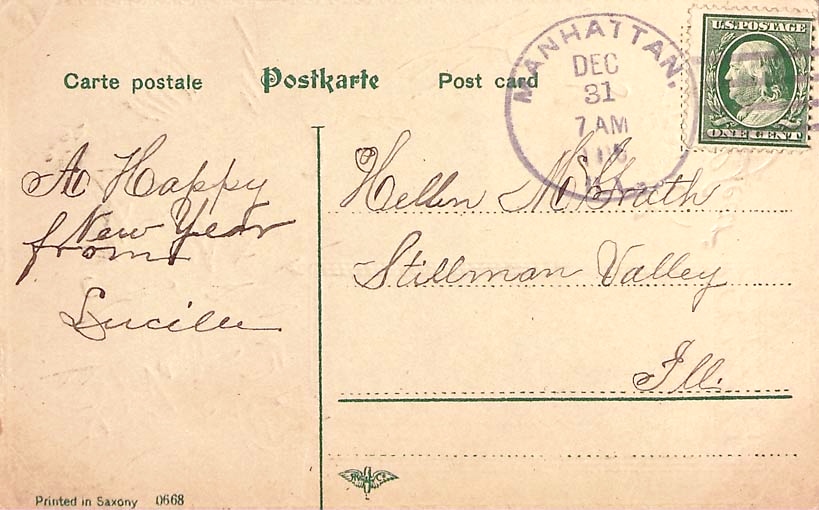 Carte postale Postkarte Post card
MANHATTAN,
DEC
31
7 AM
U.S. POSTAGE
ONE CENT
A Happy
New Year
from
Lucille
Hellen McGrath
Stillman Valley
Ill.
Printed in Saxony 0668